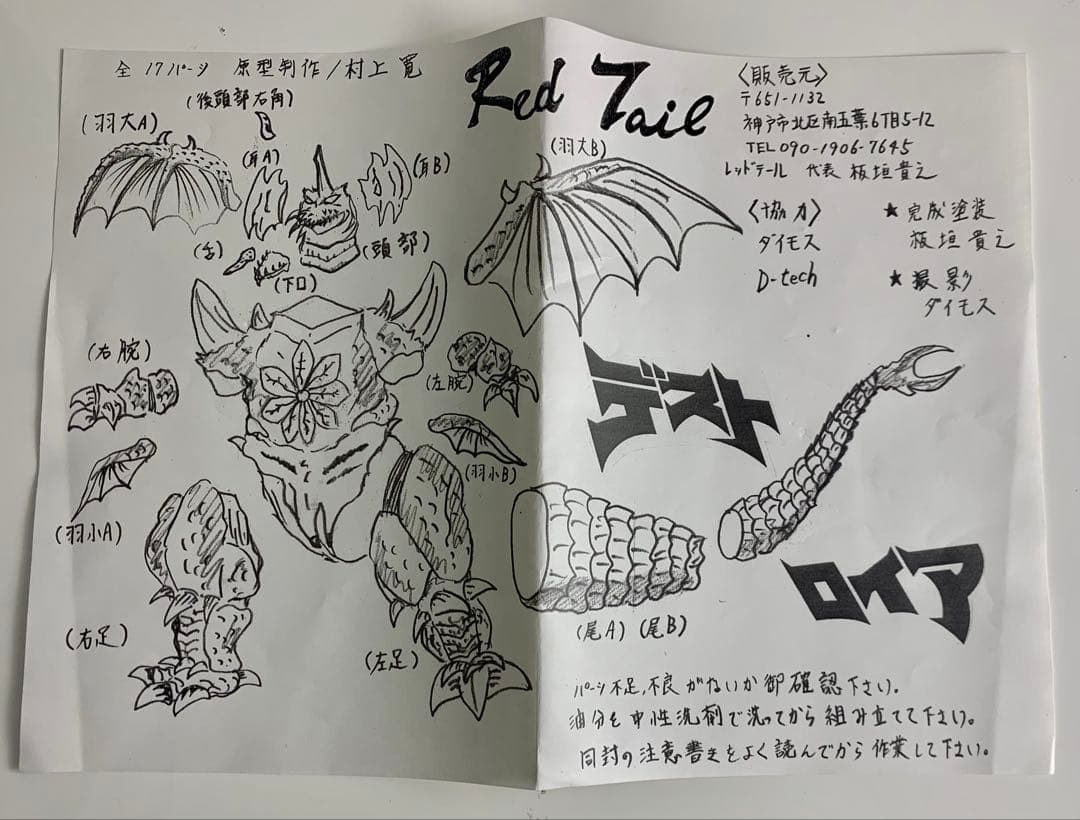 全17パーツ 原型制作/村上 寛
Red Tail
〈販売元〉
〒651-1132
神戸市北区南五葉6丁目5-12
TEL 090-1906-7645
レッドテール 代表 板垣貴之
〈協力〉
ダイモス
D-tech
★完成塗装
板垣貴之
★撮影
ダイモス
(後頭部右角)
(羽大A)
(耳A)
(耳B)
(羽大B)
(舌)
(頭部)
(下口)
(右腕)
(左腕)
(羽小A)
(羽小B)
(右足)
(左足)
(尾A) (尾B)
デスト
ロイア
パーツ不足,不良がないか御確認下さい。
油分を中性洗剤で洗ってから組み立てて下さい。
同封の注意書きをよく読んでから作業して下さい。